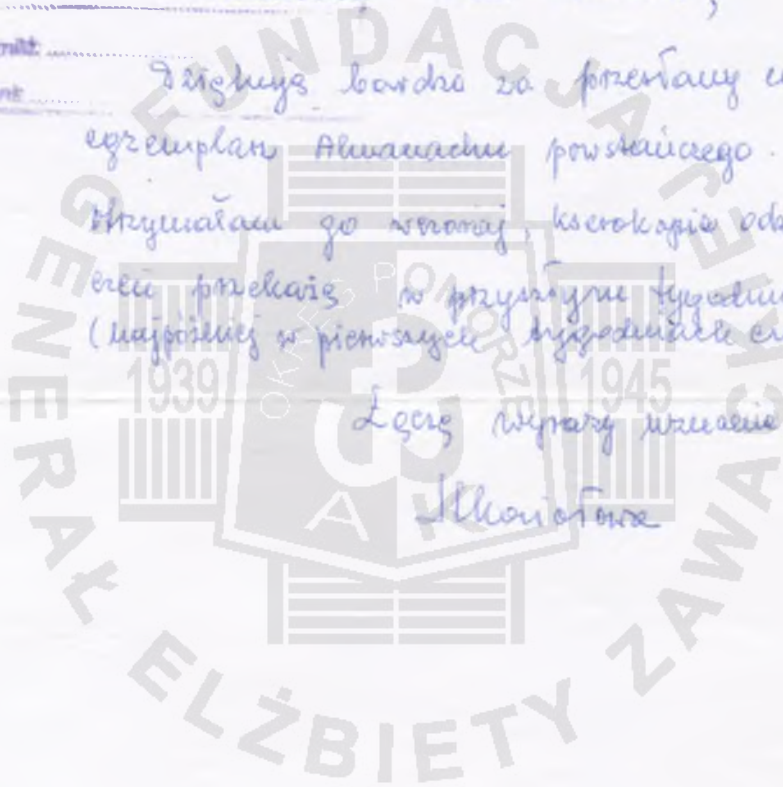 Dziękuję bardzo za przesłany
egzemplarz Almanachu powstańczego.
Otrzymałam go wczoraj, kserokopie
przekażę w przyszłym tygodniu
(najpóźniej w pierwszych tygodniach
Łączę wyrazy uznania
FUNDACJA
GENERAŁ ELŻBIETY ZAWACKIEJ
OKRĘG POMORZE
1939 1945
AK